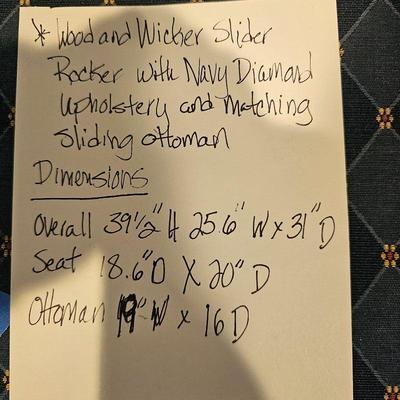 * Wood and Wicker Slider
Rocker with Navy Diamond
Upholstery and matching
Sliding ottoman
Dimensions
Overall 39 1/2" H 25.6" W x 31" D
Seat 18.6" D X 20" D
Ottoman 19" W x 16 D